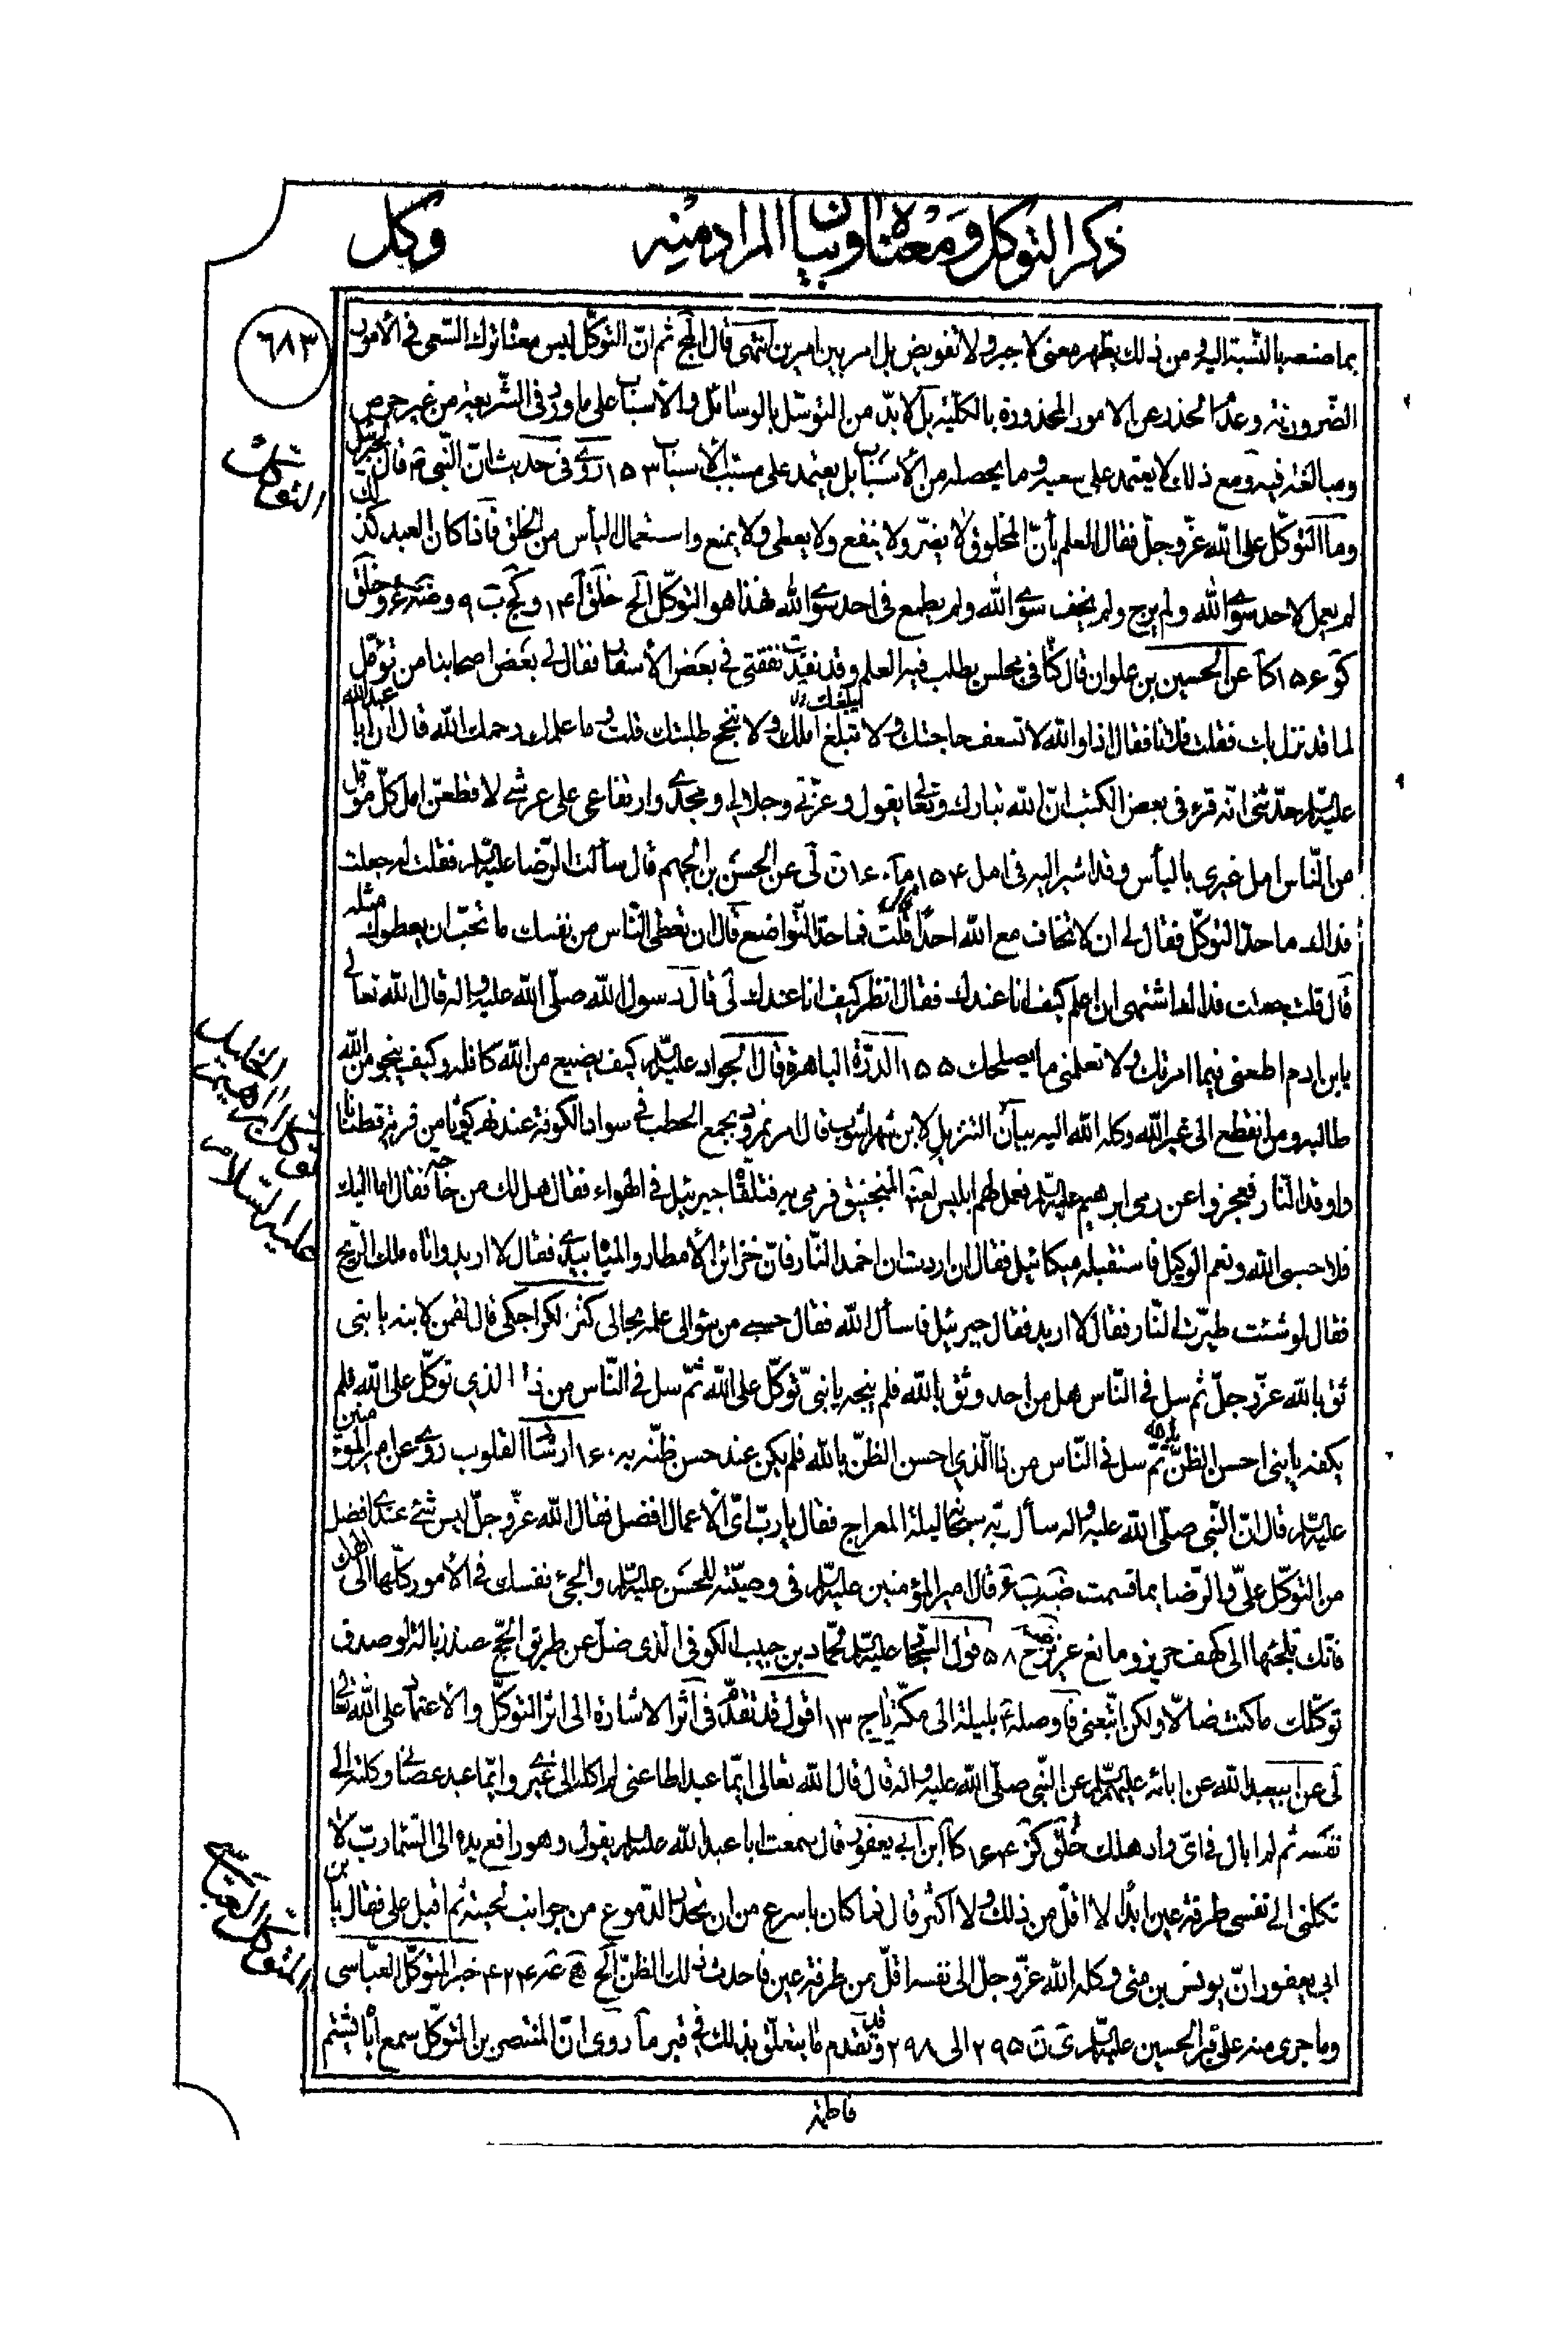 ذكر التوكل ومعناه وبيان المراد منه
وكل
٦٨٣
بما صنعه بالنسبة اليه ومن ذلك يظهر معنى لا جبر ولا تفويض بل امر بين امرين انتهى قال المج ثم انّ التوكّل ليس معناه ترك السعى فى الأمور
الضّرورية وعدم الحذر عن الامور المحذورة بالكلّية بل لا بدّ من التوسّل بالوسائل والأسباب على ما ورد فى الشّريعة من غير حرص
ومبالغة فيه ومع ذلك لا يعتمد على سعيه وما يحصله من الأسباب بل يعتمد على مسبب الأسباب ١٥٣ روى فى حديث انّ النّبى ص قال لجبرئيل
التوكل
وما التوكّل على الله عزّ وجلّ فقال العلم بأنّ المخلوق لا يضرّ ولا ينفع ولا يعطى ولا يمنع واستعمال اليأس من الخلق فاذا كان العبد كذلك
لم يعمل لاحد سوى الله ولم يرج ولم يخف سوى الله ولم يطمع فى احد سوى الله فهذا هو التوكّل الخ خلق ١٤ وكج ب ٩ وضه وخلق
كو ١٥٦ كا عن الحسين بن علوان قال كنّا فى مجلس يطلب فيه العلم وقد نفدت نفقتى فى بعض الأسفار فقال لى بعض اصحابنا من تؤمّل
لما قد نزل بك فقلت فلانا فقال اذا والله لا تسعف حاجتك ولا يبلغك املك ولا تنجح طلبتك قلت وما علمك رحمك الله قال ان ابا عبد الله
عليه السلام حدّثنى انّه قرء فى بعض الكتب انّ الله تبارك وتعالى يقول وعزّتى وجلالى ومجدى وارتفاعى على عرشى لاقطعنّ امل كلّ مؤمّل
من النّاس امل غيرى باليأس وقد اشير اليه فى امل ١٥٤ ما ١٦٠ ن لى عن الحسن بن الجهم قال سألت الرّضا عليه السلام فقلت له جعلت
فداك ما حدّ التوكّل فقال لى ان لا تخاف مع الله احدًا قلت فما حدّ التّواضع قال ان تعطى النّاس من نفسك ما تحبّ ان يعطوك مثله
قال قلت جعلت فداك اشتهى ان اعلم كيف انا عندك فقال انظر كيف انا عندك لى قال رسول الله صلّى الله عليه واله قال الله تعالى
يا بن ادم اطعنى فيما امرتك ولا تعلمنى ما يصلحك ١٥٥ الدرّة الباهرة قال الجواد عليه السلام كيف يضيع من الله كافله وكيف ينجو من الله
توكل ابراهيم الخليل عليه السلام
طالبه ومن انقطع الى غير الله وكله الله اليه بيان التنزيل لابن شهراشوب قال امر نمرود بجمع الحطب فى سواد الكوفة عند نهر كوثا من قرية قطنانا
واوقد النّار فعجزوا عن رمى ابرهيم عليه السلام فعمل لهم ابليس لعنه المنجنيق فرمى به فتلقّاه جبرئيل فى الهواء فقال هل لك من حاجة فقال اما اليك
فلا حسبى الله ونعم الوكيل فاستقبله ميكائيل فقال ان اردت ان اخمد النّار فانّ خزائن الأمطار والمياه بيدى فقال لا اريد واتاه ملك الرّيح
فقال لو شئت طيّرت النّار فقال لا اريد فقال جبرئيل فاسأل الله فقال حسبى من سؤالى علمه بحالى كنز لكراجكى قال لقمن لابنه يا بنى
ثق بالله عزّ وجلّ ثم سل فى النّاس هل من احد وثق بالله فلم ينجه يا بنىّ توكّل على الله ثمّ سل فى النّاس من ذا الذى توكّل على الله فلم
يكفه يا بنى احسن الظنّ بالله ثمّ سل فى النّاس من ذا الّذى احسن الظنّ بالله فلم يكن عند حسن ظنّه به ١٦٠ ارشاد القلوب روى عن امير المؤمنين
عليه السلام قال انّ النّبى صلّى الله عليه واله سأل ربّه سبحانه ليلة المعراج فقال يا ربّ اىّ الأعمال افضل فقال الله عزّ وجلّ ليس شئ عندى افضل
من التوكّل علىّ والرّضا بما قسمت ضه قال امير المؤمنين عليه السلام فى وصيّته للحسن عليه السلام والجئ نفسك فى الأمور كلّها الى الهك
فانّك تلجئها الى كهف حريز ومانع عزيز خ ٥٨ قول السجّاد عليه السلام لحمّاد بن حبيب الكوفى الّذى ضلّ عن طريق الحجّ صدر بالتر لو صدق
توكّلك ما كنت ضالّا ولكن اتّبعنى فاوصله بليلة الى مكّة يا يج ١٣ اقول قد تقدّم فى اثر الاشارة الى اثر التوكّل والأعتماد على الله تعالى
لى عن ابيعبد الله عن ابائه عليهم السلام عن النّبى صلّى الله عليه واله قال قال الله تعالى ايّما عبد اطاعنى لم اكله الى غيرى وايّما عبد عصانى وكلته الى
نفسه ثم لم ابال فى اىّ واد هلك خلق كز ١٦٤ كا ابن ابى يعفور قال سمعت ابا عبد الله عليه السلام يقول وهو رافع يده الى السّماء ربّ لا
تكلنى الى نفسى طرفة عين ابدًا لا اقلّ من ذلك ولا اكثر قال فما كان باسرع من ان تحدّر الدّموع من جوانب لحيته ثم اقبل على فقال يا بن
المتوكل العباسى
ابى يعفور انّ يونس بن متى وكله الله عزّ وجلّ الى نفسه اقلّ من طرفة عين فاحدث ذلك الظنّ الخ ٤٢٤ خبر المتوكّل العبّاسى
وما جرى منه على قبر الحسين عليه السلام ى ن ٢٩٥ الى ٢٩٨ وقد تقدم ما يتعلّق بذلك فى قبر ما روى انّ المنتصر بن المتوكّل سمع اباه يشتم
فاطمة